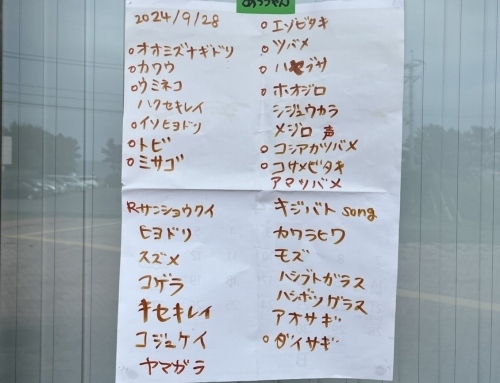 めっちゃん
2024/9/28
○オオミズナギドリ
○カワウ
○ウミネコ
ハクセキレイ
○イソヒヨドリ
○トビ
○ミサゴ
○エゾビタキ
○ツバメ
○ハヤブサ
○ホオジロ
シジュウカラ
メジロ 声
○コシアカツバメ
○コサメビタキ
アマツバメ
R-サンショウクイ
ヒヨドリ
スズメ
コゲラ
キセキレイ
コジュケイ
ヤマガラ
キジバト song
カワラヒワ
モズ
ハシブトガラス
ハシボソガラス
アオサギ
○ダイサギ